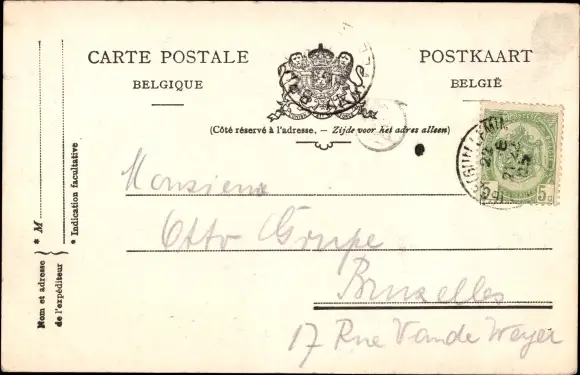 CARTE POSTALE
BELGIQUE
POSTKAART
BELGIË
(Côté réservé à l'adresse. – Zijde voor het adres alleen)
5c
Monsieur
Otto Grupe
Bruxelles
17 Rue Van de Weyer
Nom et adresse
de l'expéditeur
* M
* Indication facultative